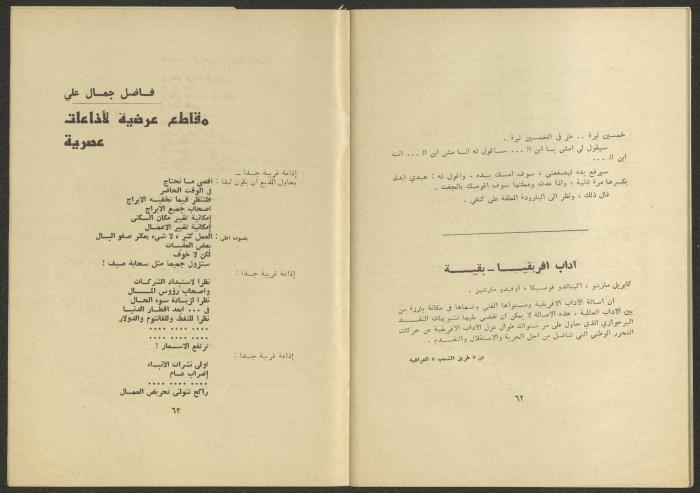 خمسين ليرة .. علز في الخمسين ليرة .
سيقول لي امش يا ابن ال ... سأقول له انا مش ابن ال ... انت
ابن ال ...
سيرفع يده ليصفعني ، سوف امسك يده ، واقول له : هيدي ايدك
بكسرها مرة ثانية ، واذا عدت وعملتها سوف اقوصك بالجفت .
قال ذلك ، ونظر الى البارودة المعلقة على كتفي .
آداب افريقيا ــ بقية
كابريل مارينو ، اكينالدو فونسيكا ، اوفيدو مارتنيز .
ان اصالة الآداب الافريقية ومستواها الفني وضعاها في مكانة بارزة من
بين الآداب العالمية ، هذه الاصالة لا يمكن ان تقضي عليها تشويهات النقد
البرجوازي الذي حاول على مر سنوات طوال عزل الآداب الافريقية عن حركات
التحرر الوطني التي تناضل من اجل الحرية والاستقلال والتقدم .
عن « طريق الشعب » العراقية
٦٢
فاضل جمال علي
مقاطع عرضية لأذاعات
عصرية
إذاعة قريبة جدا ــ
يحاول المذيع أن يكون لبقا : اقصى ما نحتاج
في الوقت الحاضر
فلننظر فيما تخفيه الابراج
اصحاب جميع الابراج
إمكانية تغيير مكان السكنى
إمكانية تغيير الاعمال
بصوت اعلى : العمل كثير ، لا شيء يعكر صفو البال
بعض العقبات
لكن لا خوف
ستزول جميعا مثل سحابة صيف !
إذاعة قريبة جدا :
نظرا لاستبداد الشركات
واصحاب رؤوس المال
نظرا لزيادة سوء الحال
في ... ابعد اقطار الدنيا
نظرا للنفط وللفانتوم والدولار
.... .... .... ....
.... .... .... ....
ترتفع الاسعار !
إذاعة قريبة جدا :
اولى نشرات الأنباء
إضراب عام
.... .... .... ....
راكح تتولى تحريض العمال
٦٣